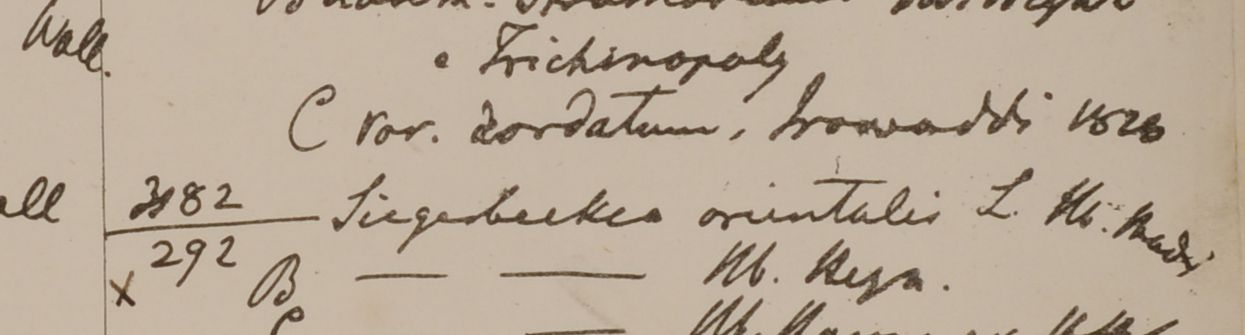 Wall.
e Trichinopoly
C var. cordatum, Irawaddi 1826
3182 Siegesbeckea orientalis L. Hb. Madr
292
x B — — Hb. Heyn.